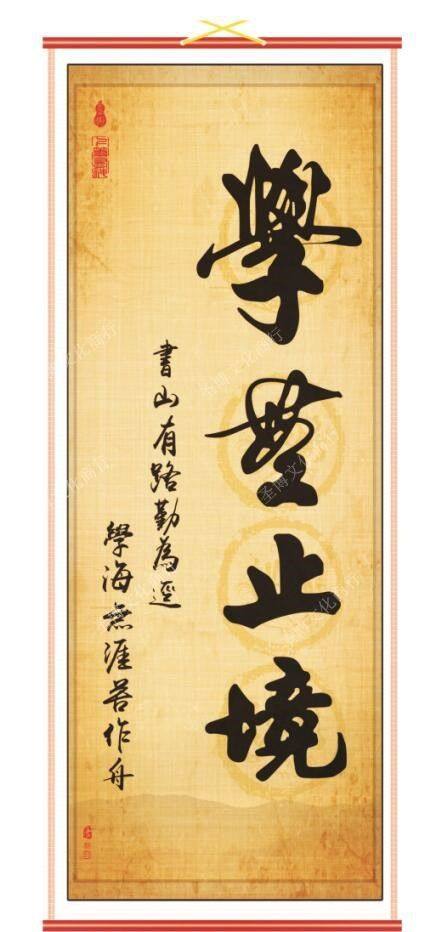 學無止境
書山有路勤為逕
學海無涯苦作舟
圣博文化商行